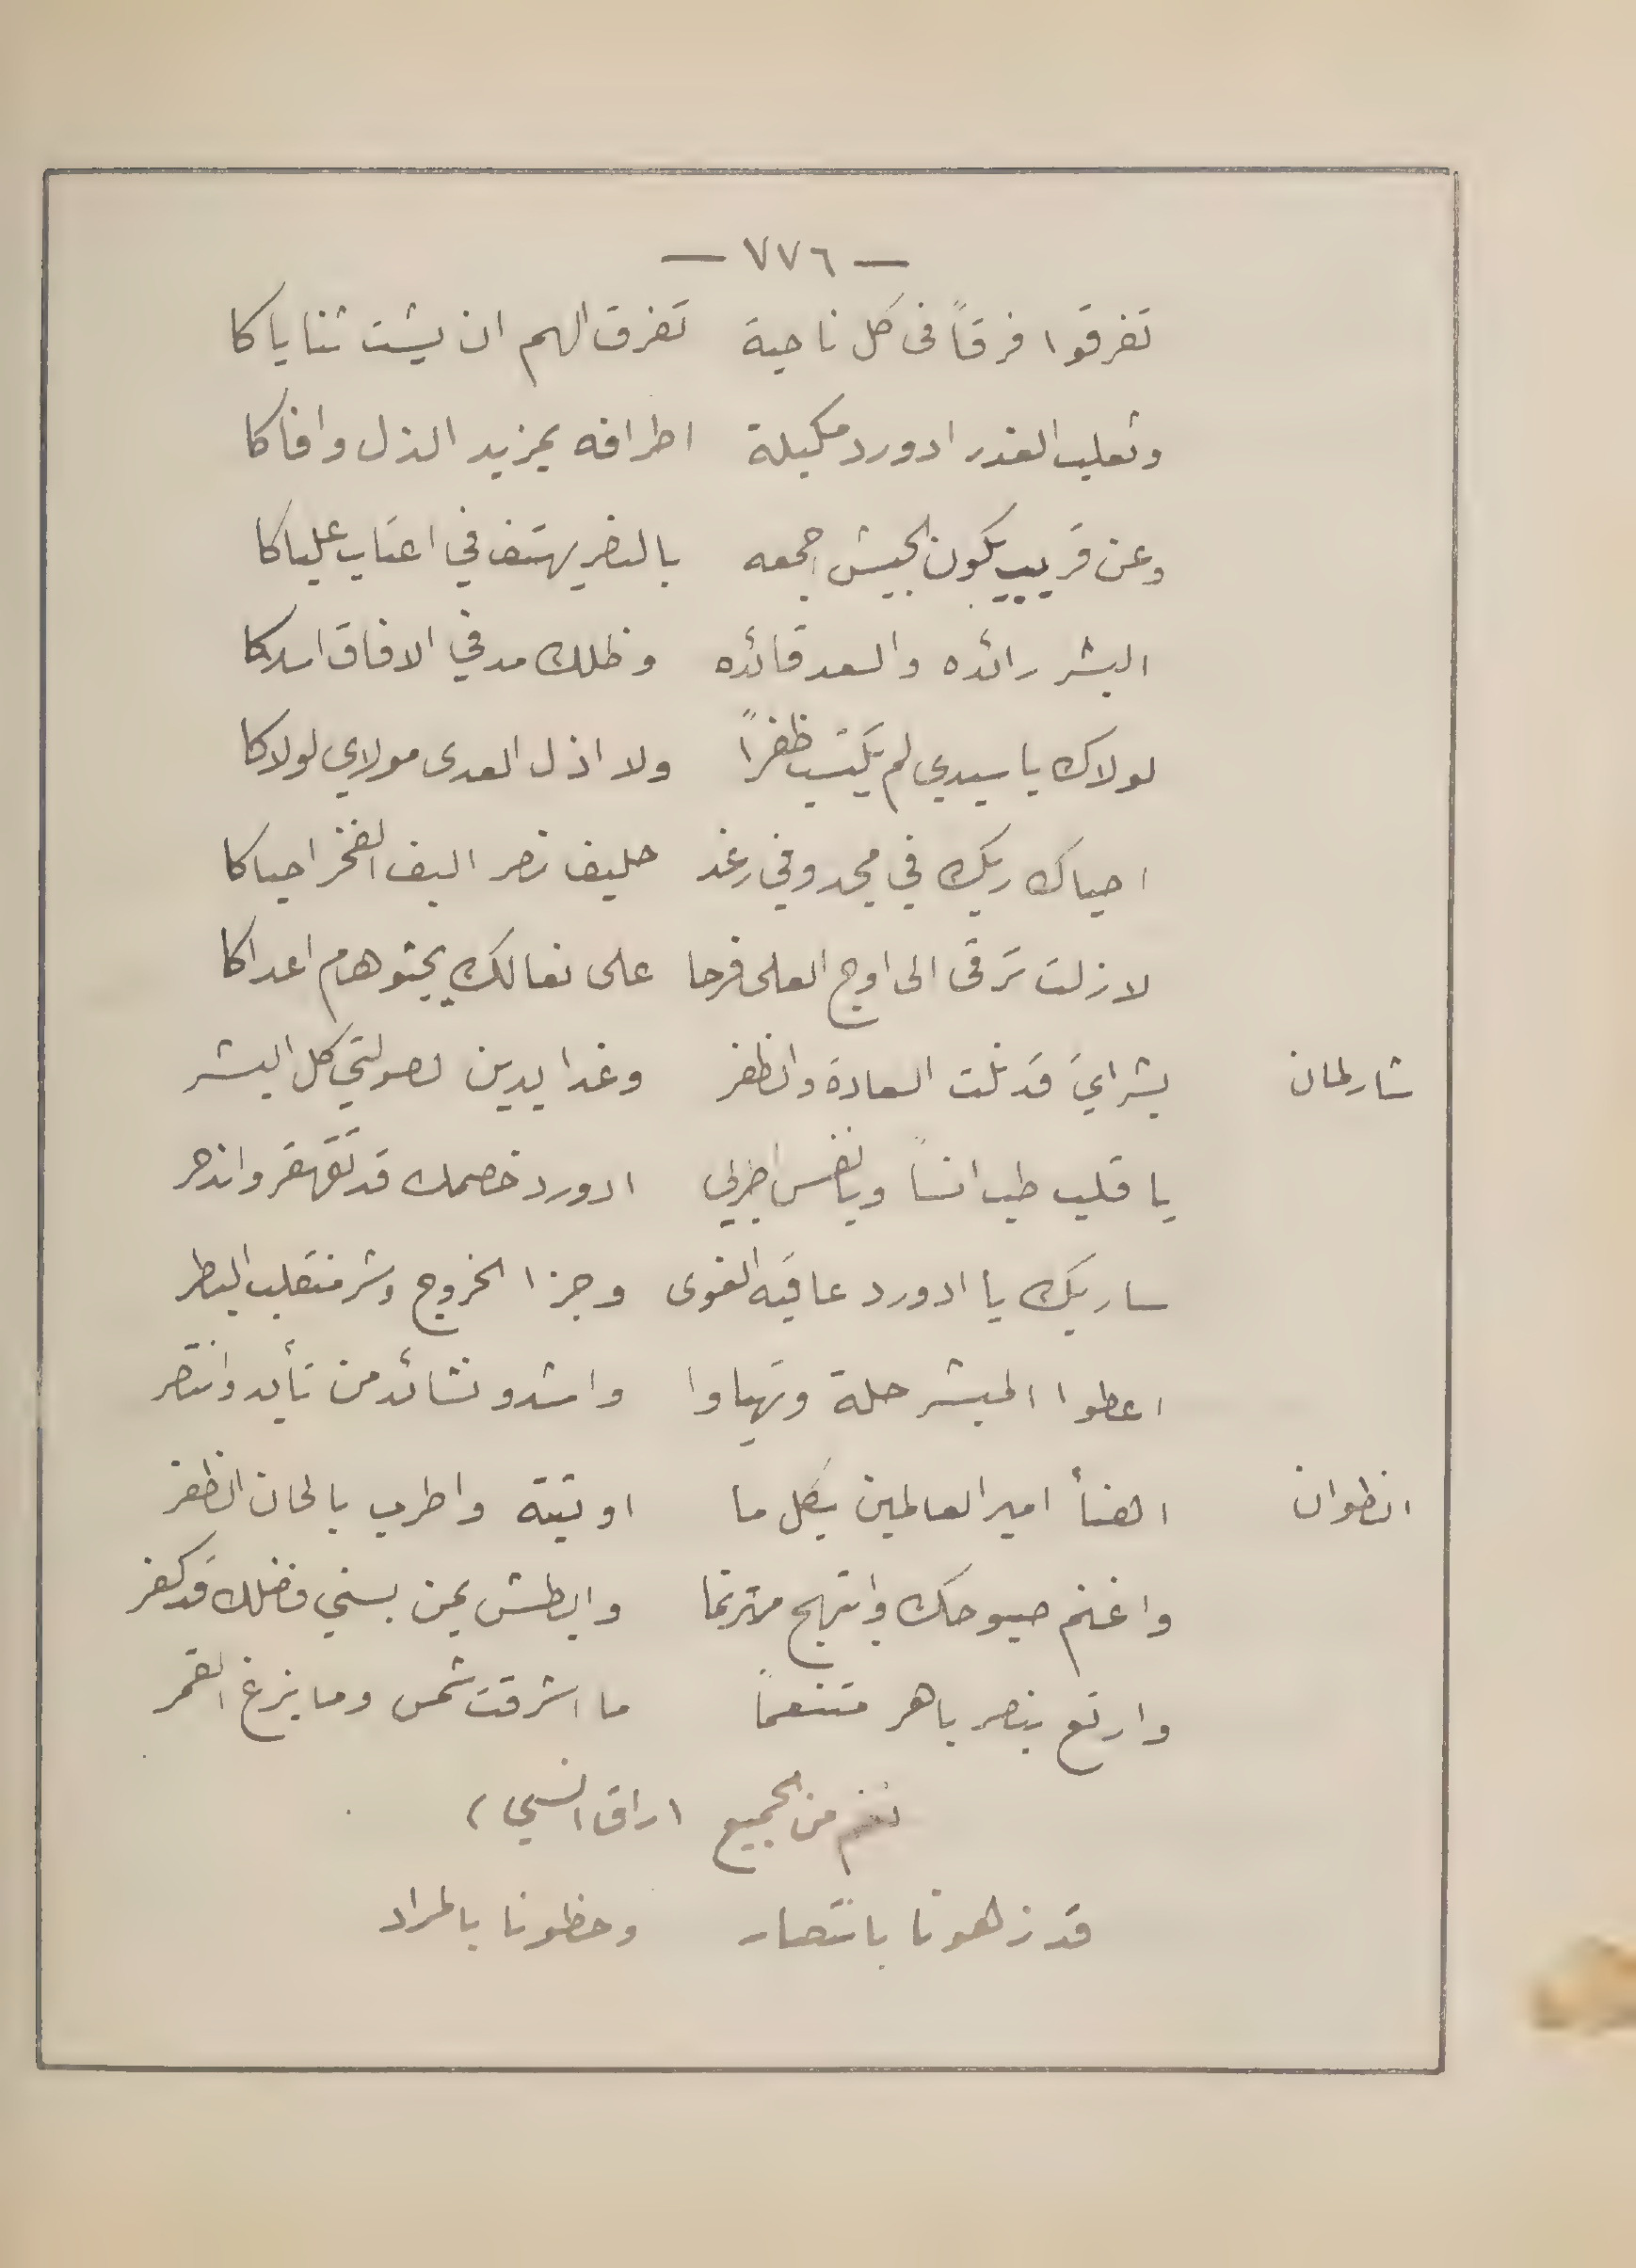 — ٧٧٦ —
تفرقوا فرقاً فى كل ناحية تفرق الهم ان يشت ثناياكا
وثعلب الغدر ادورد مكبلة اطرافه بمزيد الذل وافاكا
وعن قريب يكون الجيش اجمعه بالنصر يهتف في اعتاب علياكا
البشر رائده والسعد قائده وظلك مد في الافاق
لولاك يا سيدي لم يكتسب ظفراً ولا اذل العدى مولاي لولاكا
احياك ربك في مجد وفي رغد حليف نصر اليف الفخر احياكا
لا زلت ترقى الى اوج العلى فرحا على نعالك يجثو هام اعداكا
شارلمان بشراي قد نلت السعادة والظفر وغدا يدين لصولتي كل البشر
يا قلب طب انساً ويا نفس اطربي ادورد خصمك قد تقهقر واندحر
ساريك يا ادورد عاقبة الغوى وجزا الخروج وشر منقلب البطر
اعطوا المبشر حلة وتهياوا وانشدو نشائد من تأيد وانتصر
انطوان اهنأ امير العالمين بكل ما اوتيته واطرب بالحان الظفر
واغنم صبوحك وابتهج مترنما وابطش بمن بسني فضلك قد كفر
وارتع بنصر باهر متنعماً ما اشرقت شمس وما بزغ القمر
نغم من الجميع (راق انسي)
قد زهونا بانتصار وحظونا بالمراد